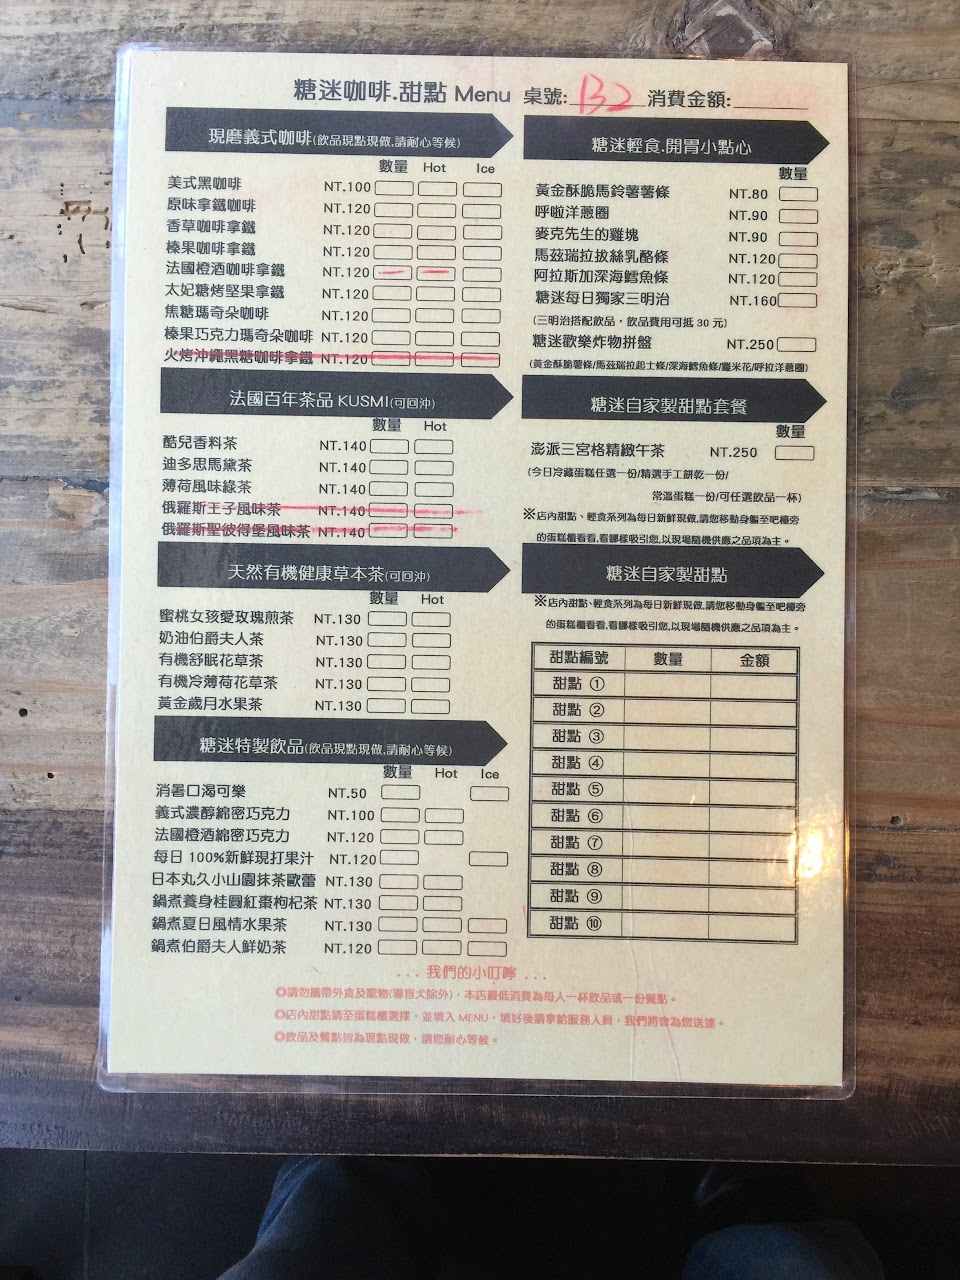 糖迷咖啡.甜點 Menu 桌號: B2 消費金額:
現磨義式咖啡(飲品現點現做,請耐心等候)
數量 Hot Ice
美式黑咖啡 NT.100
原味拿鐵咖啡 NT.120
香草咖啡拿鐵 NT.120
榛果咖啡拿鐵 NT.120
法國橙酒咖啡拿鐵 NT.120
太妃糖烤堅果拿鐵 NT.120
焦糖瑪奇朵咖啡 NT.120
榛果巧克力瑪奇朵咖啡 NT.120
火烤沖繩黑糖咖啡拿鐵 NT.120
法國百年茶品 KUSMI(可回沖)
數量 Hot
酷兒香料茶 NT.140
迪多思馬黛茶 NT.140
薄荷風味綠茶 NT.140
俄羅斯王子風味茶 NT.140
俄羅斯聖彼得堡風味茶 NT.140
天然有機健康草本茶(可回沖)
數量 Hot
蜜桃女孩愛玫瑰煎茶 NT.130
奶油伯爵夫人茶 NT.130
有機舒眠花草茶 NT.130
有機冷薄荷花草茶 NT.130
黃金歲月水果茶 NT.130
糖迷特製飲品(飲品現點現做,請耐心等候)
數量 Hot Ice
消暑口渴可樂 NT.50
義式濃醇綿密巧克力 NT.100
法國橙酒綿密巧克力 NT.120
每日 100%新鮮現打果汁 NT.120
日本丸久小山園抹茶歐蕾 NT.130
鍋煮養身桂圓紅棗枸杞茶 NT.130
鍋煮夏日風情水果茶 NT.130
鍋煮伯爵夫人鮮奶茶 NT.120
糖迷輕食.開胃小點心
數量
黃金酥脆馬鈴薯薯條 NT.80
呼啦洋蔥圈 NT.90
麥克先生的雞塊 NT.90
馬茲瑞拉拔絲乳酪條 NT.120
阿拉斯加深海鱈魚條 NT.120
糖迷每日獨家三明治 NT.160
(三明治搭配飲品，飲品費用可抵 30 元)
糖迷歡樂炸物拼盤 NT.250
(黃金酥脆薯條/馬茲瑞拉起士條/深海鱈魚條/雞米花/呼拉洋蔥圈)
糖迷自家製甜點套餐
數量
澎派三宮格精緻午茶 NT.250
(今日冷藏蛋糕任選一份/精選手工餅乾一份/
常溫蛋糕一份/可任選飲品一杯)
※店內甜點、輕食系列為每日新鮮現做,請您移動身軀至吧檯旁
的蛋糕櫃看看,看哪樣吸引您,以現場隨機供應之品項為主。
糖迷自家製甜點
※店內甜點、輕食系列為每日新鮮現做,請您移動身軀至吧檯旁
的蛋糕櫃看看,看哪樣吸引您,以現場隨機供應之品項為主。
甜點編號 數量 金額
甜點 ①
甜點 ②
甜點 ③
甜點 ④
甜點 ⑤
甜點 ⑥
甜點 ⑦
甜點 ⑧
甜點 ⑨
甜點 ⑩
... 我們的小叮嚀 ...
◎請勿攜帶外食及寵物(導盲犬除外)，本店最低消費為每人一杯飲品或一份餐點。
◎店內甜點請至蛋糕櫃選擇，並填入 MENU，填好後請拿給服務人員，我們將會為您送達。
◎飲品及餐點皆為現點現做，請您耐心等候。